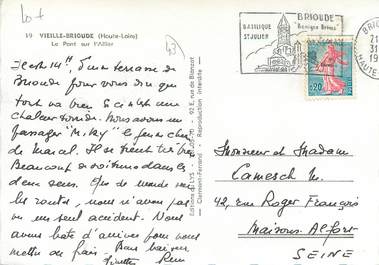 lot
19 VIEILLE-BRIOUDE (Haute-Loire)
Le Pont sur l'Allier
43
Il est 14h, d'une terrasse de
Brioude pour vous dire que
tout va bien. Il fait une
chaleur torride. Nous avons un
passager "Miky" le
de Marcel. Il se tient très bien
Beaucoup de voitures dans les
deux sens. Que de monde sur
les routes, nous n'avons pas
vu un seul accident. Nous
avons hâte d'arriver pour nous
mettre au frais. Bons baisers
Editions de LYS - 92 E, rue de Blanzat
Clermont-Ferrand - Reproduction interdite
BASILIQUE
ST JULIEN
BRIOUDE
BRIOUDE
HAUTE
0,20
Monsieur et Madame
Camesch M.
42, rue Roger François
Maisons-Alfort
SEINE